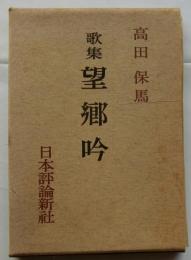 高田保馬
歌集
望郷吟
日本評論新社